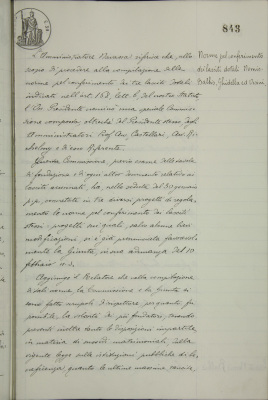 843
L'Amministratore Devessa riferisce che, allo
scopo di procedere alla compilazione delle
norme pel conferimento dei tre lasciti dotali
indicati nell'art. lett. b, del nostro Statuto
l'On. Presidente nominò una speciale Commis-
sione composta, oltreché del Presidente stesso, degli
Amministratori Prof. Avv. Castellari, Avv.
e di esso Riferente.
Questa Commissione, presa esame delle tavole
di fondazione e di ogni altro documento relativo ai
lasciti accennati, ha, nella seduta del 30 gennaio
p.p. concretati in tre diversi progetti di regola-
mento le norme pel conferimento dei lasciti
stessi, progetti sui quali, salvo alcune lievi
modificazioni, si è già pronunciata favorevol-
mente la Giunta, in sua adunanza del 10
febbraio a.c.
Aggiunge il Relatore che nella compilazione
di tali norme, la Commissione e la Giunta si
sono fatte scrupolo di rispettare, per quanto fu
possibile, la volontà dei pii fondatori, avendo
presenti inoltre tanto le disposizioni impartite
in materia di sussidi matrimoniali, dalla
vigente legge sulle istituzioni pubbliche di be-
neficenza, quanto le ultime massime sancite
Norme pel conferimento
dei lasciti dotali
Balbo, ed